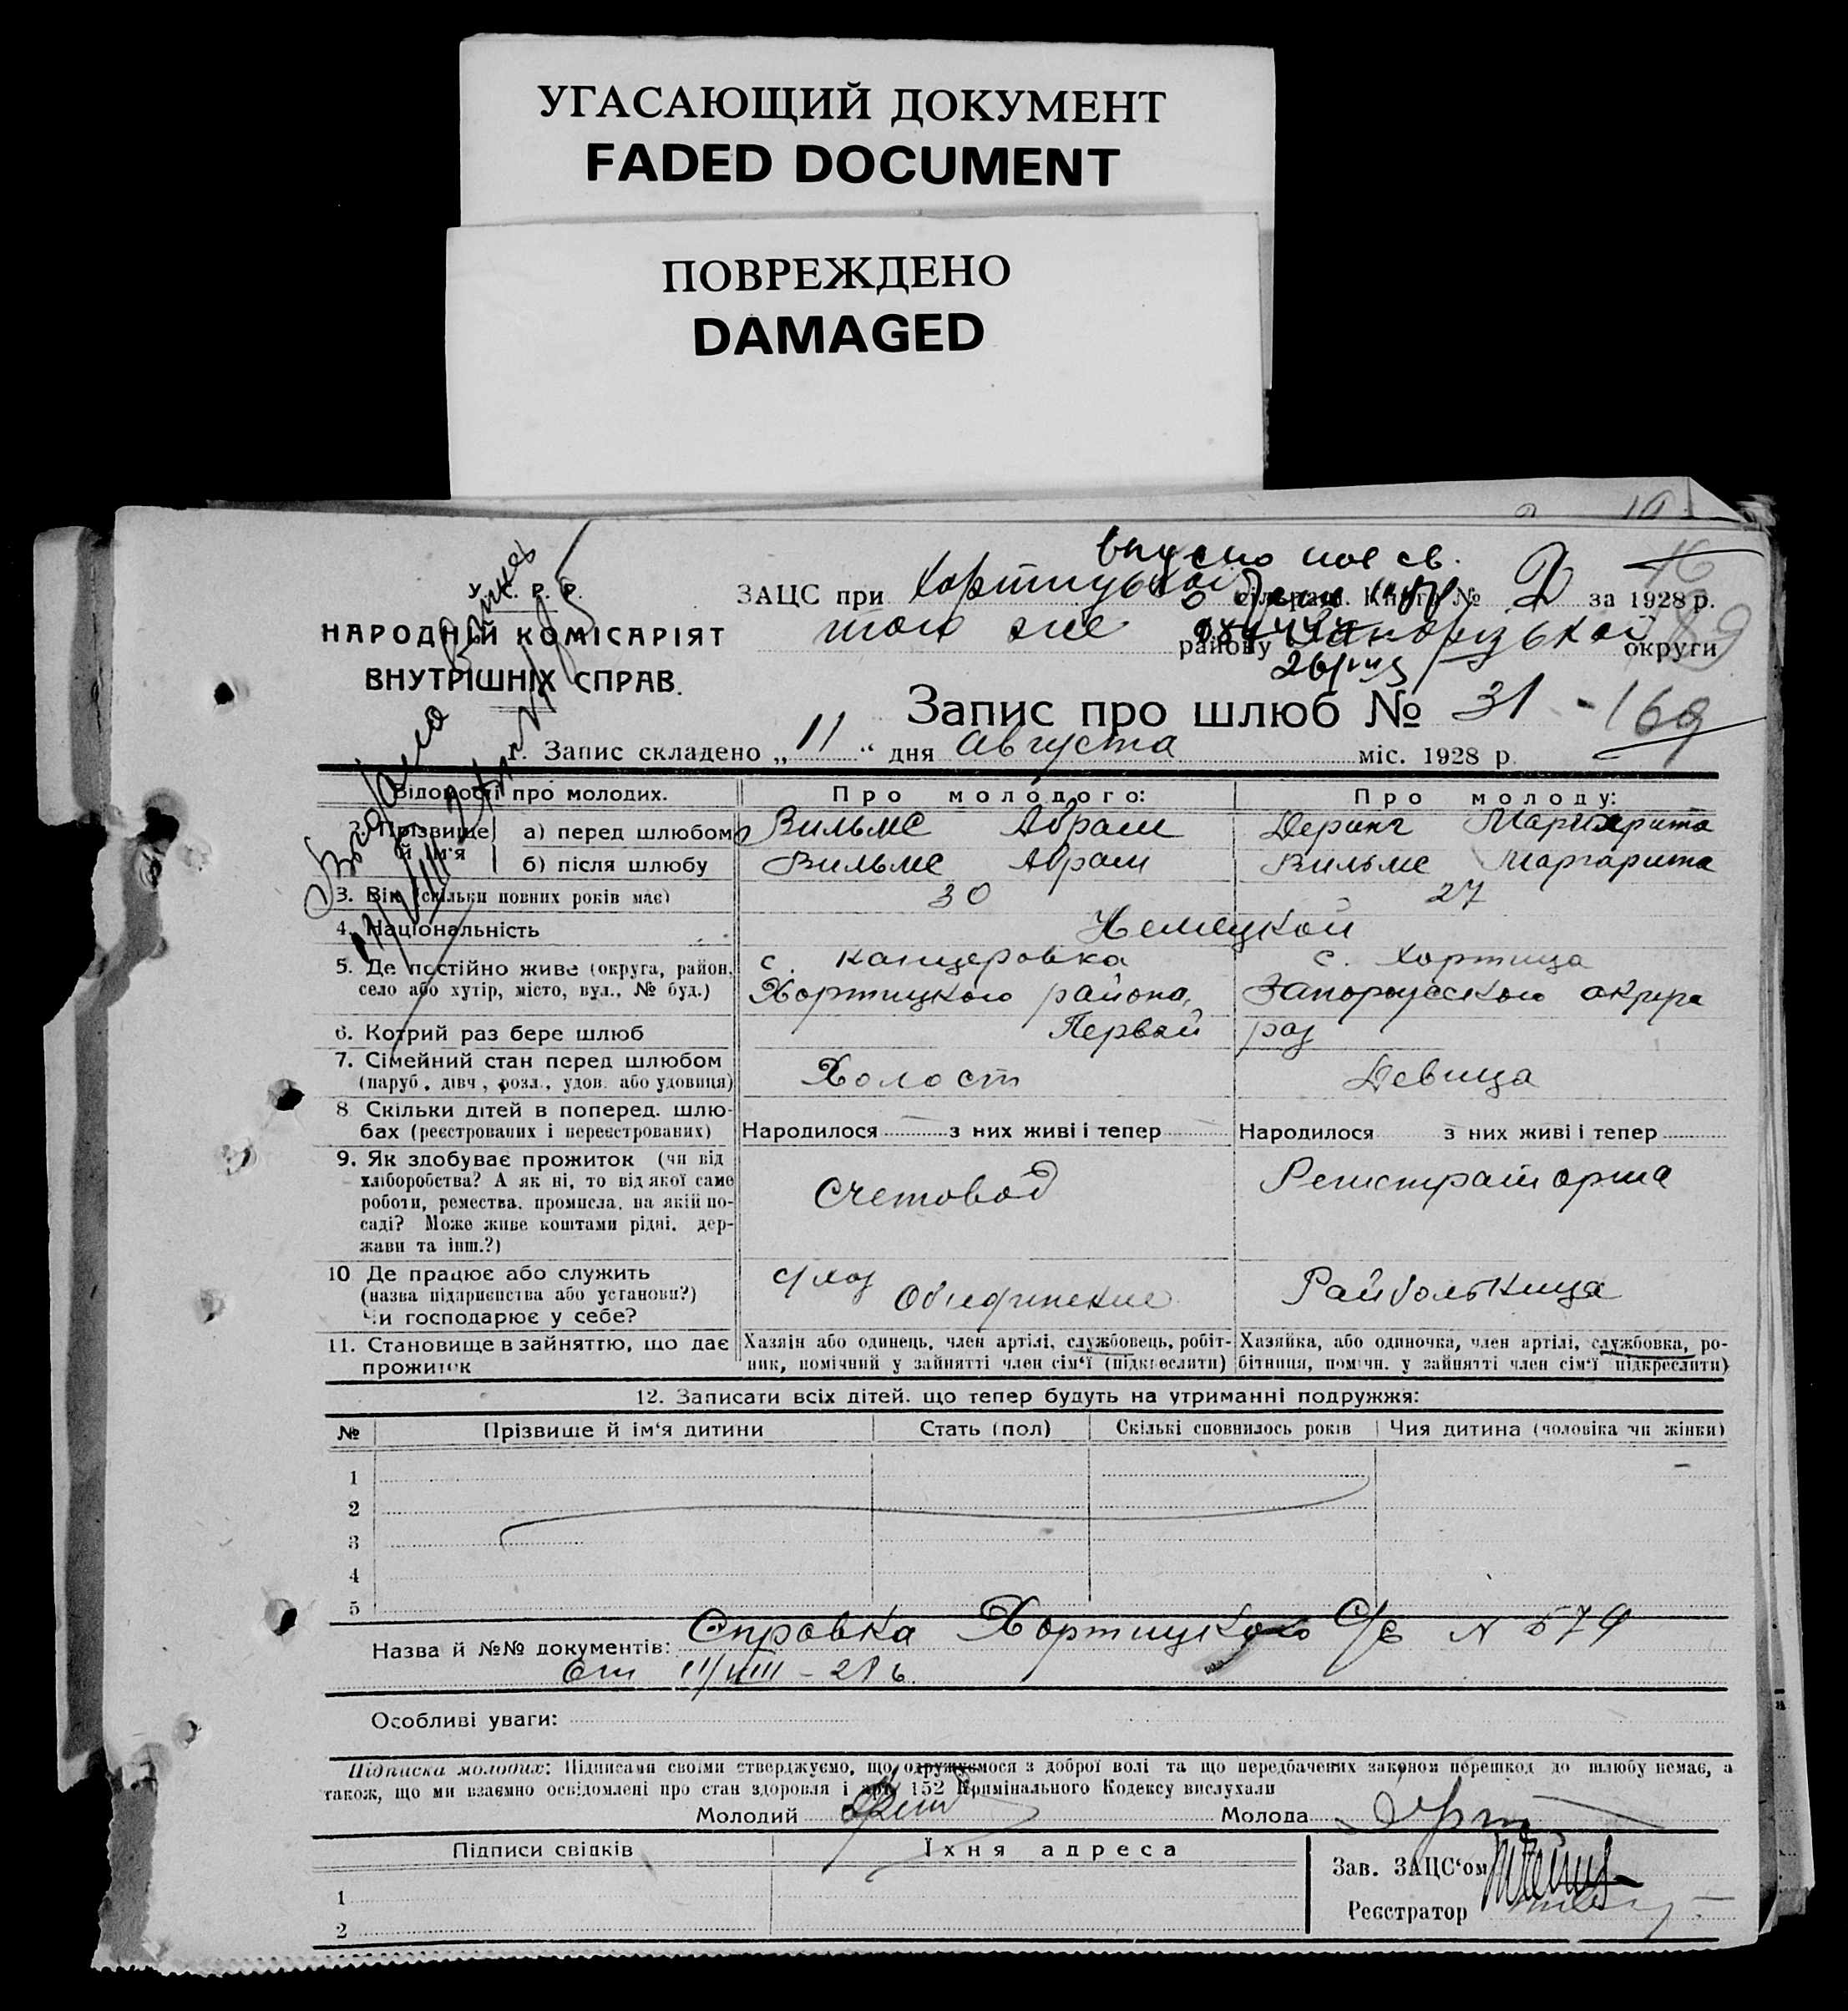 УГАСАЮЩИЙ ДОКУМЕНТ
FADED DOCUMENT
ПОВРЕЖДЕНО
DAMAGED
У. С. Р. Р.
НАРОДНІЙ КОМІСАРІЯТ
ВНУТРІШНІХ СПРАВ.
ЗАЦС при Хортицькой сільраді. Книга № 2 за 1928 р.
того же району Запоризькой округи
16
Запис про шлюб № 31 - 169
1. Запис складено „11“ дня Августа міс. 1928 р.
Відомості про молодих. Про молодого: Про молоду:
2. Прізвище й ім'я
а) перед шлюбом Вильмс Абрам Деринг Маргарита
б) після шлюбу Вильмс Абрам Вильмс Маргарита
3. Вік (скільки повних років має) 30 27
4. Національність Немецкой
5. Де постійно живе (округа, район, с. Канцеровка с. Хортица
село або хутір, місто, вул., № буд.) Хортицкого района, Запорожского округа
6. Котрий раз бере шлюб Первый раз
7. Сімейний стан перед шлюбом Холост Девица
(паруб., дівч., розл., удов. або удовиця)
8. Скільки дітей в поперед. шлю-
бах (реєстрованих і нереєстрованих) Народилося з них живі і тепер Народилося з них живі і тепер
9. Як здобуває прожиток (чи від
хліборобства? А як ні, то від якої саме Счетовод Регистраторша
роботи, ремества, промисла, на якій по-
саді? Може живе коштами рідні, дер-
жави та інш.?)
10. Де працює або служить с/хоз Райбольница
(назва підприємства або установи?) Объединение
Чи господарює у себе?
11. Становище в зайняттю, що дає Хазяін або одинець, член артілі, службовець, робіт- Хазяйка, або одиночка, член артілі, службовка, ро-
прожиток ник, помічний у зайнятті член сім'ї (підкреслити) бітниця, помічн. у зайнятті член сім'ї (підкреслити)
12. Записати всіх дітей, що тепер будуть на утриманні подружжя:
№ Прізвище й ім'я дитини Стать (пол) Скількі сповнилось років Чия дитина (чоловіка чи жінки)
1
2
3
4
5
Назва й №№ документів: Справка Хортицкого С/с N 579
от 11/VIII-28 г.
Особливі уваги:
Підписка молодих: Підписами своїми стверджуємо, що одружуємося з доброї волі та що передбачених законом перешкод до шлюбу немає, а
також, що ми взаємно освідомлені про стан здоровля і арт. 152 Кримінального Кодексу вислухали
Молодий Молода
Підписи свідків Їхня адреса
Зав. ЗАЦС'ом
1
Реєстратор
2